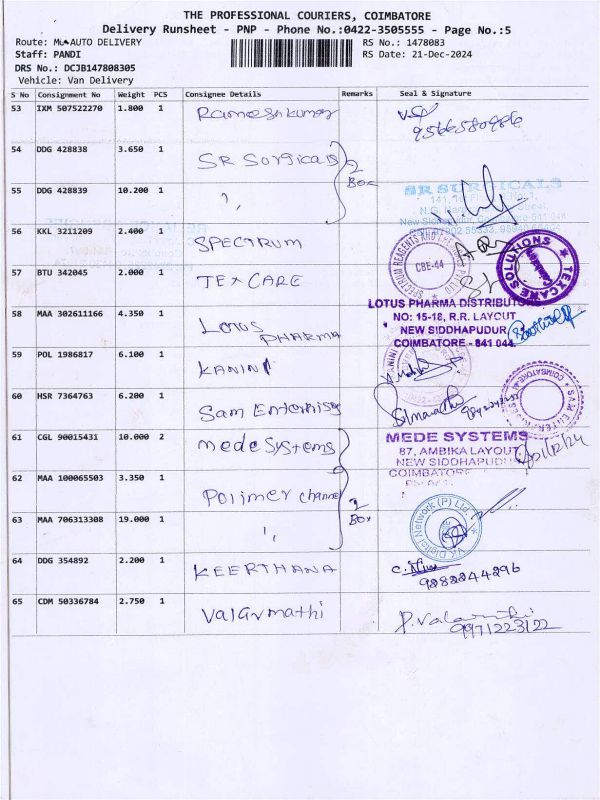 THE PROFESSIONAL COURIERS, COIMBATORE
Delivery Runsheet - PNP - Phone No.:0422-3505555 - Page No.:5
Route: AUTO DELIVERY
RS No.: 1478083
Staff: PANDI
RS Date: 21-Dec-2024
DRS No.: DCJB147808305
Vehicle: Van Delivery
S No Consignment No Weight PCS Consignee Details Remarks Seal & Signature
53 IXM 507522270 1.800 1 Rameshkumar
9566580986
54 DDG 428838 3.650 1 SR Surgicals
2 Box
55 DDG 428839 10.200 1 "
SR SURGICALS
56 KKL 3211209 2.400 1 SPECTRUM
SPECTRUM REAGENTS AND
CBE-44
TEXCARE SOLUTIONS
57 BTU 342045 2.000 1 TEXCARE
58 MAA 302611166 4.350 1 LOTUS PHARMA
LOTUS PHARMA DISTRIBUTORS
NO: 15-18, R.R. LAYOUT
NEW SIDDHAPUDUR,
COIMBATORE - 641 044.
59 POL 1986817 6.100 1 KANINI
60 HSR 7364763 6.200 1 Sam Enterprises
61 CGL 90015431 10.000 2 mede Systems
MEDE SYSTEMS
87, AMBIKA LAYOUT,
NEW SIDDHAPUDUR
COIMBATORE
62 MAA 100065503 3.350 1 Polimer channel
2 Box
63 MAA 706313308 19.000 1 "
VK Digital Network (P) Ltd.
64 DDG 354892 2.200 1 KEERTHANA
9282244296
65 CDM 50336784 2.750 1 Valarmathi
P. Valarmathi
9971223122